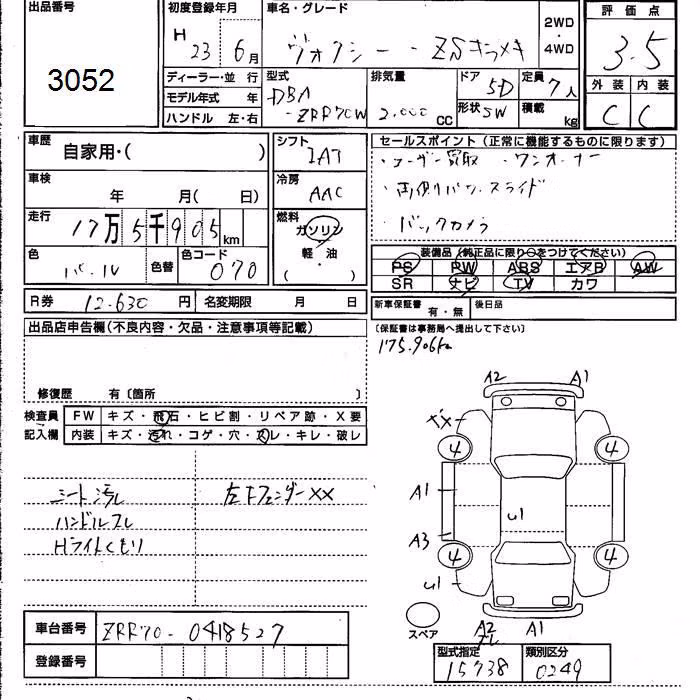 出品番号
3052
初度登録年月
H 23 6月
車名・グレード
ヴォクシー・ZSキラメキ
2WD
・
4WD
評価点
3.5
外装 内装
C C
ディーラー・並 行
モデル年式 年
ハンドル 左・右
型式
DBA
-ZRR70W
排気量
2,000 CC
ドア 5D
形状 SW
定員 7人
積載 kg
車歴
自家用・( )
車検
年 月( 日)
走行
17万5千905km
色
パール
色替
色コード
070
シフト
IAT
冷房
AAC
燃料
ガソリン
・
軽・油
( )
セールスポイント(正常に機能するものに限ります)
・ユーザー買取 ・ワンオーナー
・両側リパワースライド
・バックカメラ
装備品(純正品に限り○をつけてください)
PS PW ABS エアB AW
SR ナビ TV カワ
R券 12,630 円 名変期限 月 日
新車保証書 有・無 後日品
(保証書は事務局へ提出して下さい)
175,906km
出品店申告欄(不良内容・欠品・注意事項等記載)
修復歴 有〔箇所 〕
検査員
記入欄
FW キズ・飛石・ヒビ割・リペア跡・X要
内装 キズ・汚れ・コゲ・穴・スレ・キレ・破レ
シート汚レ
ハンドルスレ
Hライトくもり
左Fフェンダー××
A2 A1
4 4
A1
U1
A3
4 4
U1
スペア
A2 A1
車台番号 ZRR70-0418527
登録番号
型式指定 類別区分
15738 0249